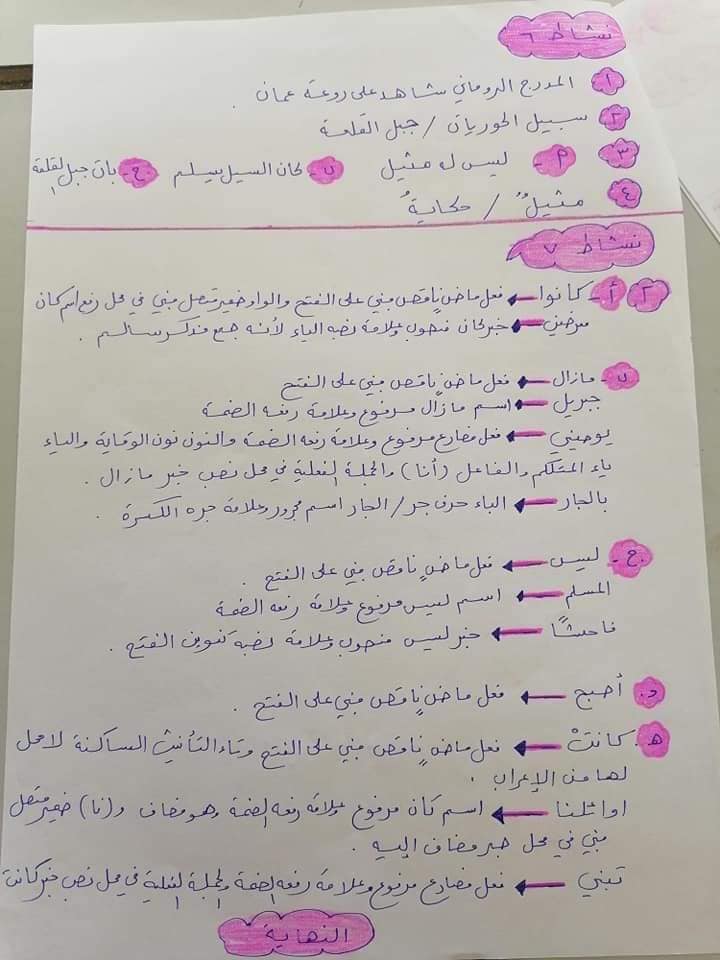 نشاط ٦
١. المدرج الروماني شاهد على روعة عمان .
٢. سبيل الحوريات / جبل القلعة
٣. م- ليس له مثيل ب- لكان السيل يسلم ج- بات جبل القلعة
٤. مثيلٌ / حكايةُ
نشاط ٧
٢ أ- كانوا ← فعل ماضٍ ناقص مبني على الفتح والواو ضمير متصل مبني في محل رفع اسم كان
معرضين ← خبر كان منصوب وعلامة نصبه الياء لأنه جمع مذكر سالم .
ب- مازال ← فعل ماضٍ ناقص مبني على الفتح
جبريل ← اسم مازال مرفوع وعلامة رفعه الضمة
يوصيني ← فعل مضارع مرفوع وعلامة رفعه الضمة والنون نون الوقاية والياء
ياء المتكلم والفاعل (أنا) والجملة الفعلية في محل نصب خبر مازال .
بالجار ← الباء حرف جر / الجار اسم مجرور وعلامة جره الكسرة .
ج- ليس ← فعل ماضٍ ناقص مبني على الفتح .
المسلم ← اسم ليس مرفوع وعلامة رفعه الضمة
فاحشًا ← خبر ليس منصوب وعلامة نصبه تنوين الفتح .
د. أصبح ← فعل ماضٍ ناقص مبني على الفتح .
هـ. كانتْ ← فعل ماضٍ ناقص مبني على الفتح وتاء التأنيث الساكنة لا محل
لها من الإعراب .
اوائلنا ← اسم كان مرفوع وعلامة رفعه الضمة وهو مضاف و(نا) ضمير متصل
مبني في محل جر مضاف إليه .
تبني ← فعل مضارع مرفوع وعلامة رفعه الضمة والجملة الفعلية في محل نصب خبر كانت
النهاية